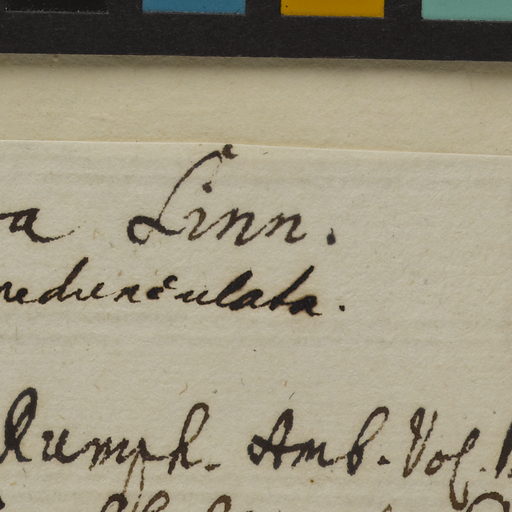 a Linn.
pedunculata.
Rumph. Amb. Vol.